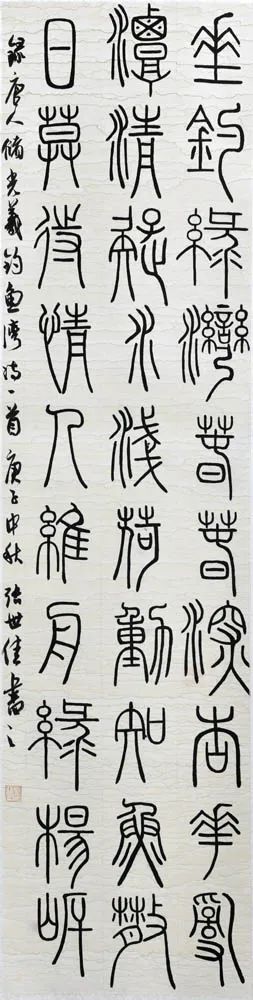 垂釣綠灣春春深杏華亂
潭清疑水淺荷動知魚散
日莫待情人維舟綠楊岸
錄唐人儲光羲釣魚灣詩一首庚子中秋張世佳書之